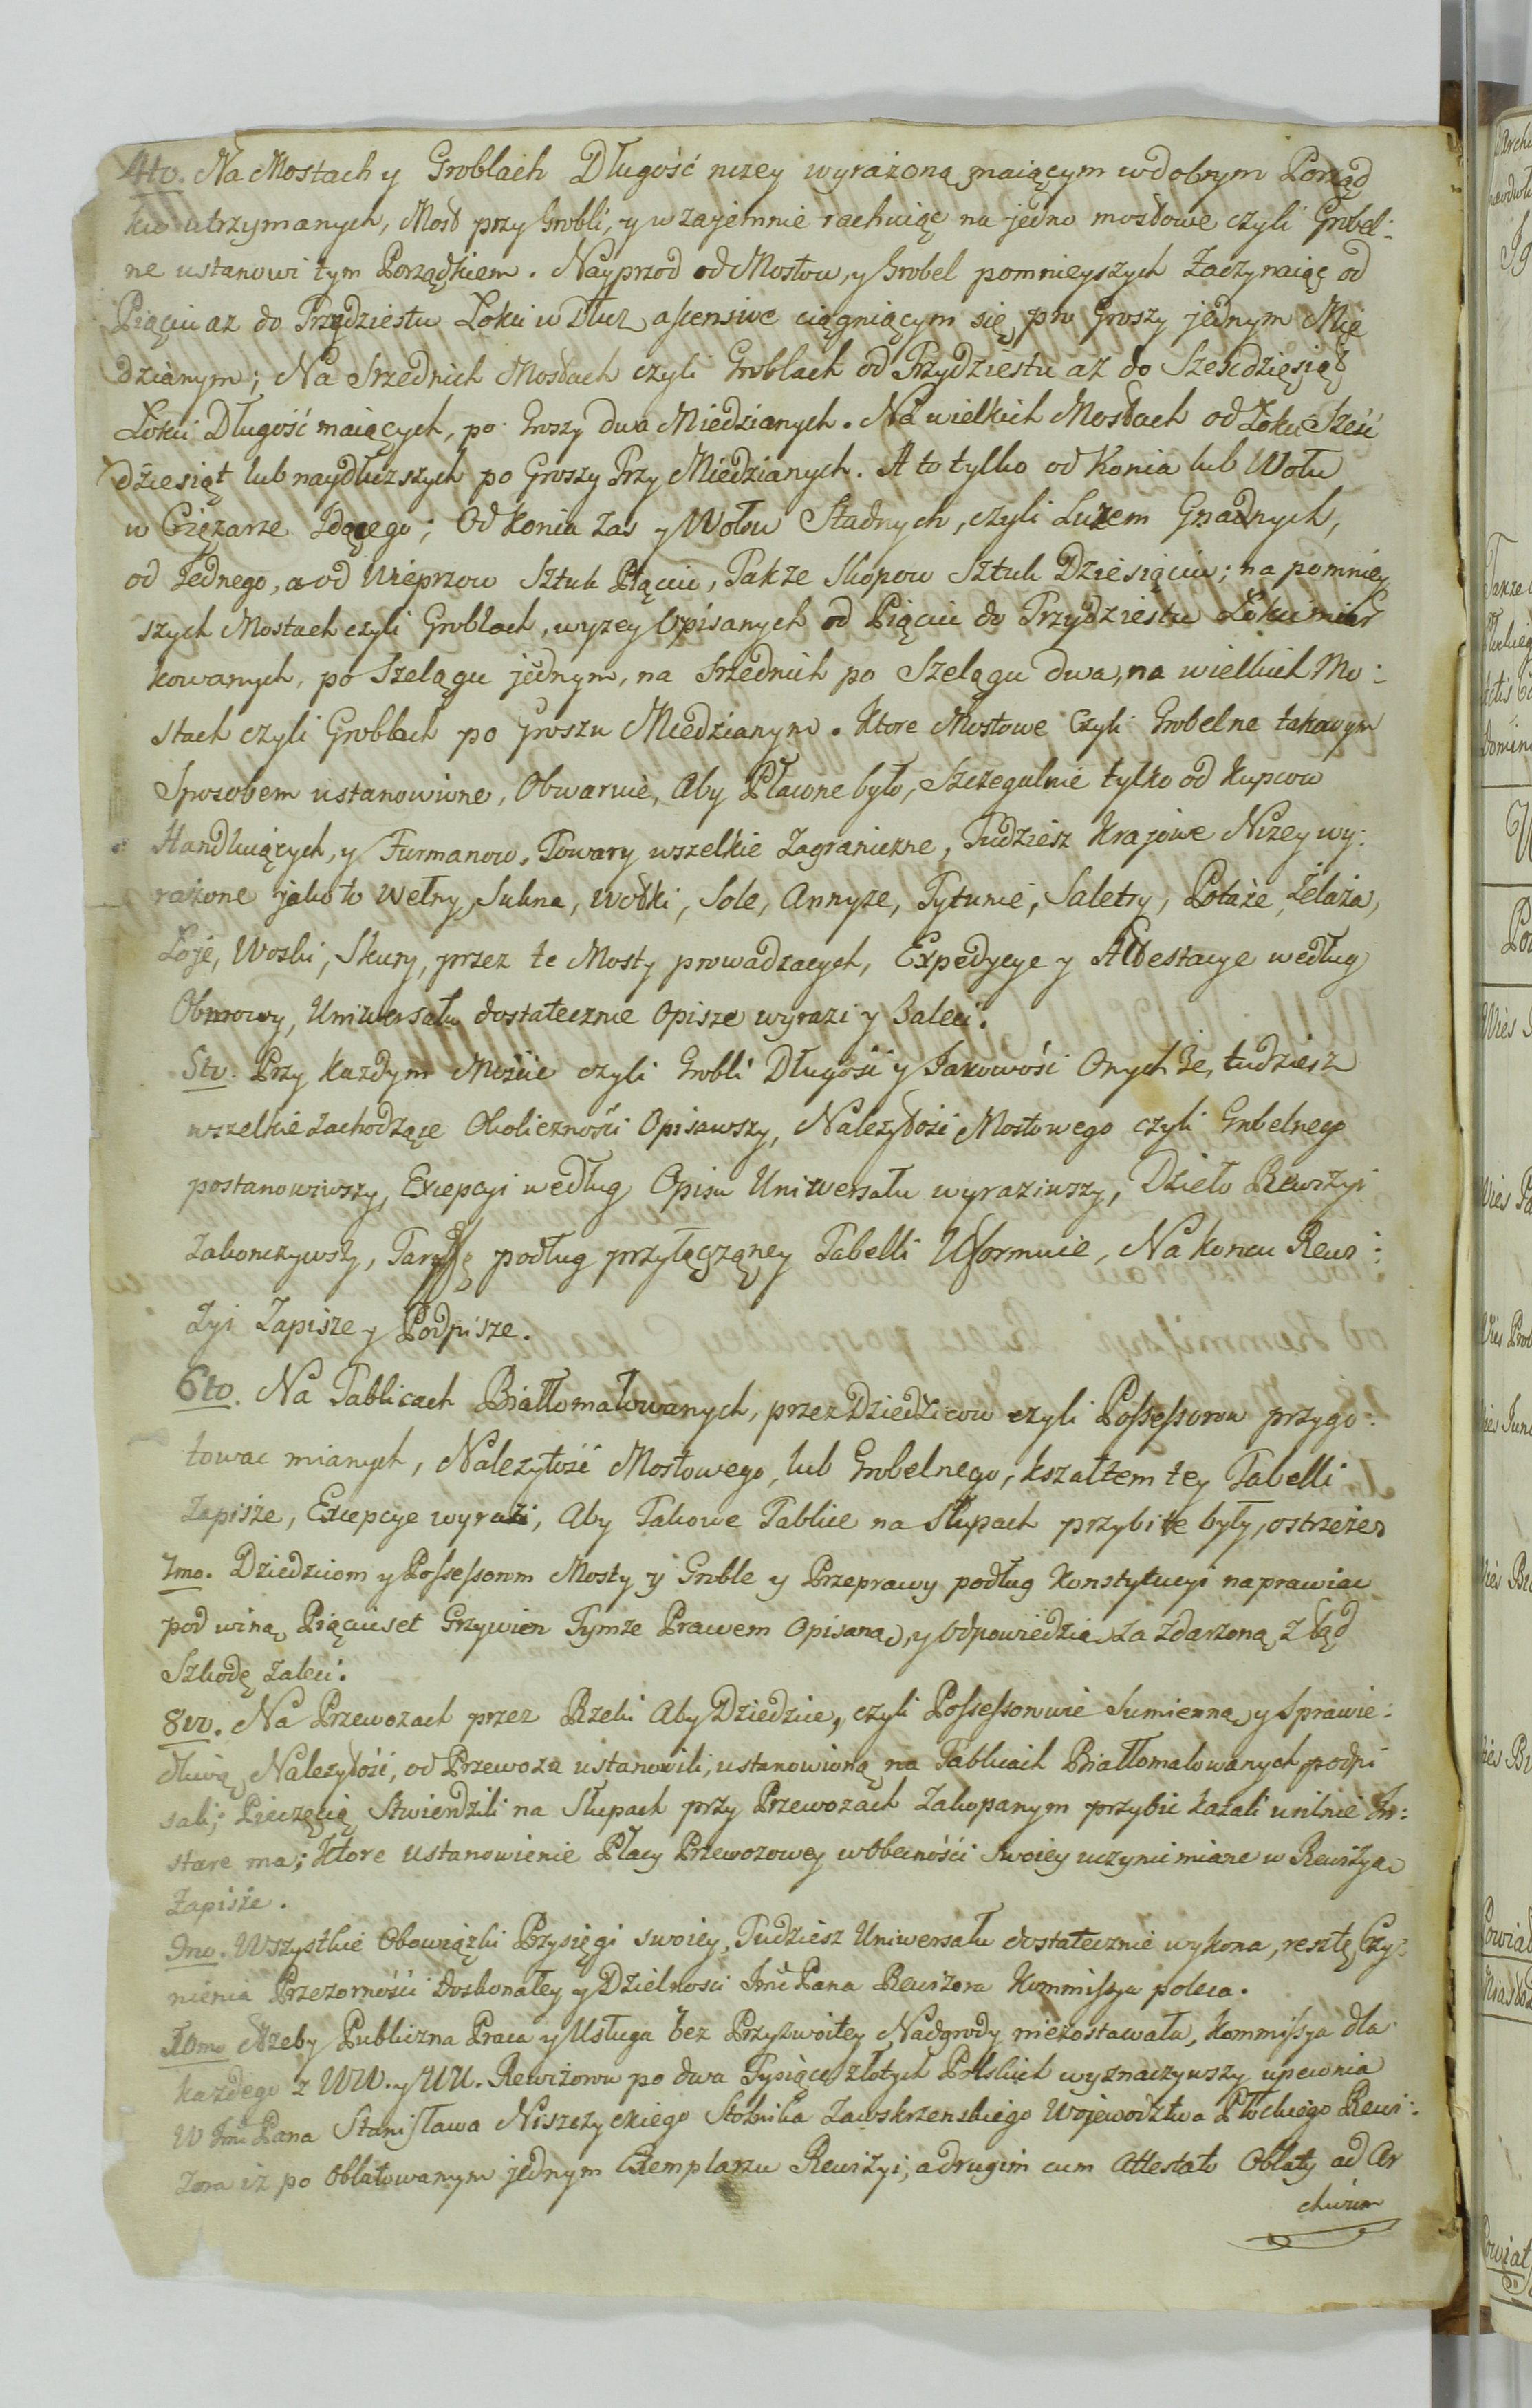 4to. Na Mostach y Groblach Długość niżey wyrażoną maiącym wdobrym Porząd
ku utrzymanych, Most przy Grobli, y wzajemnie rachuiąc na jedno mostowe czyli Grobel:
ne ustanowi tym Porządkiem. Nayprzod od Mostow, y Grobel pomnieyszych Zaczynaiąc od
Piąciu az do Trzydziestu Łokci w Dłuz ascensive ciągniącym się, po Groszy jednym Mie
dzianym; Na Srzednich Mostach czyli Groblach od Trzydziestu az do Szescdziesiąt
Łokci Długość maiących, po Groszy dwa Miedzianych. Na wielkich Mostach od Łokci Sześć
dziesiąt lub naydłuzszych po Groszy Trzy Miedzianych. A to tylko od Konia lub Wołu
w Ciężarze Idącego; Od Konia zas y Wołow Stadnych, czyli Luzem Gnadnych,
od Jednego, a od Wieprzow Sztuk Piąciu, Takze Skopow Sztuk Dziesiąciu; na pomniey
szych Mostach czyli Groblach, wyzey Opisanych od Piąciu do Trzydziestu Łokci miar
kowanych, po Szelągu jednym, na Srzednich po Szelągu dwa, na wielkich Mo:
stach czyli Groblach po Groszu Miedzianym. Ktore Mostowe Czyli Grobelne takowym
Sposobem ustanowione, Obwaruie, Aby Płacone było, Szczegulnie tylko od Kupcow
Handluiących, y Furmanow, Towary wszelkie Zagraniczne, Tudziesz Krajowe Nizey wy:
rażone jako to Wełny, Sukna, Wodki, Sole, Annyze, Tytunie, Saletry, Potaże, Zelaza,
Łoje, Woski, Skury, przez te Mosty prowadzacych, Expedycye y Attestacye według
Obmowy, Uniwersału dostatecznie Opisze wyrazi y Zaleci.
5to. Przy Każdym Moście czyli Grobli Długość y Jakowość Onych Ze, tudziesz
wszelkie Zachodzące Okoliczności Opisawszy, Należytość Mostowego czyli Grobelnego
postanowiwszy, Excepcyi według Opisu Uniwersału wyraziwszy, Dzieło Rewizyi
Zakonczywszy, Taryffę podług przyłączoney Tabelli Uformuie, Na koncu Rewi:
Zyi Zapisze y Podpisze.
6to. Na Tablicach Białłomalowanych, przez Dziedzicow czyli Possessorow przygo:
towac mianych, Nalezytość Mostowego, lub Grobelnego, kszałtem tey Tabelli
Zapisze, Excepcye wyrazi, Aby Takowe Tablice na Słupach przybite były, ostrzeże
7mo. Dziedzicom y Possessorom Mosty y Groble y Przeprawy podług Konstytucyi naprawiac
pod winą Piąciuset Grzywien Tymze Prawem Opisaną, y Odpowiedzią Za Zdarzoną Ztąd
Szkodę Zaleci.
8vo. Na Przewozach przez Rzeki Aby Dziedzice, czyli Possessorowie Sumienną y Sprawie:
dliwą Nalezytość, od Przewoza ustanowili, ustanowioną na Tablicach Białłomalowanych podpi
sali, Pieczęcią Stwierdzili na Słupach przy Przewozach Zakopanym przybic kazali usilnie In:
stare ma; Ktore Ustanowienie Płacy Przewozowey wobecności Swoiey uczynic miane w Rewizya
Zapisze.
9no. Wszystkie Obowiązki Przysięgi swoiey, Tudziesz Uniwersału dostatecznie wykona, resztę Czy:
nienia Przezorności doskonałey y Dzielnosci Jmć Pana Rewizora Kommissya poleca.
10mo Azeby Publiczna Praca y Usługa bez Przyzwoitey Nadgrody niezostawała, Kommissya dla
każdego z WW. y UU. Rewizorow po dwa Tysiące złotych Polskich wyznaczywszy upewnia
W Jmć Pana Stanisława Niszczyckiego Stolnika Zawskrzenskiego Wojewodztwa Płockiego Rewi:
Zora iż po Oblatowanym jednym Exemplarzu Rewizyi, a drugim cum Attestato Oblaty ad Ar
chivum